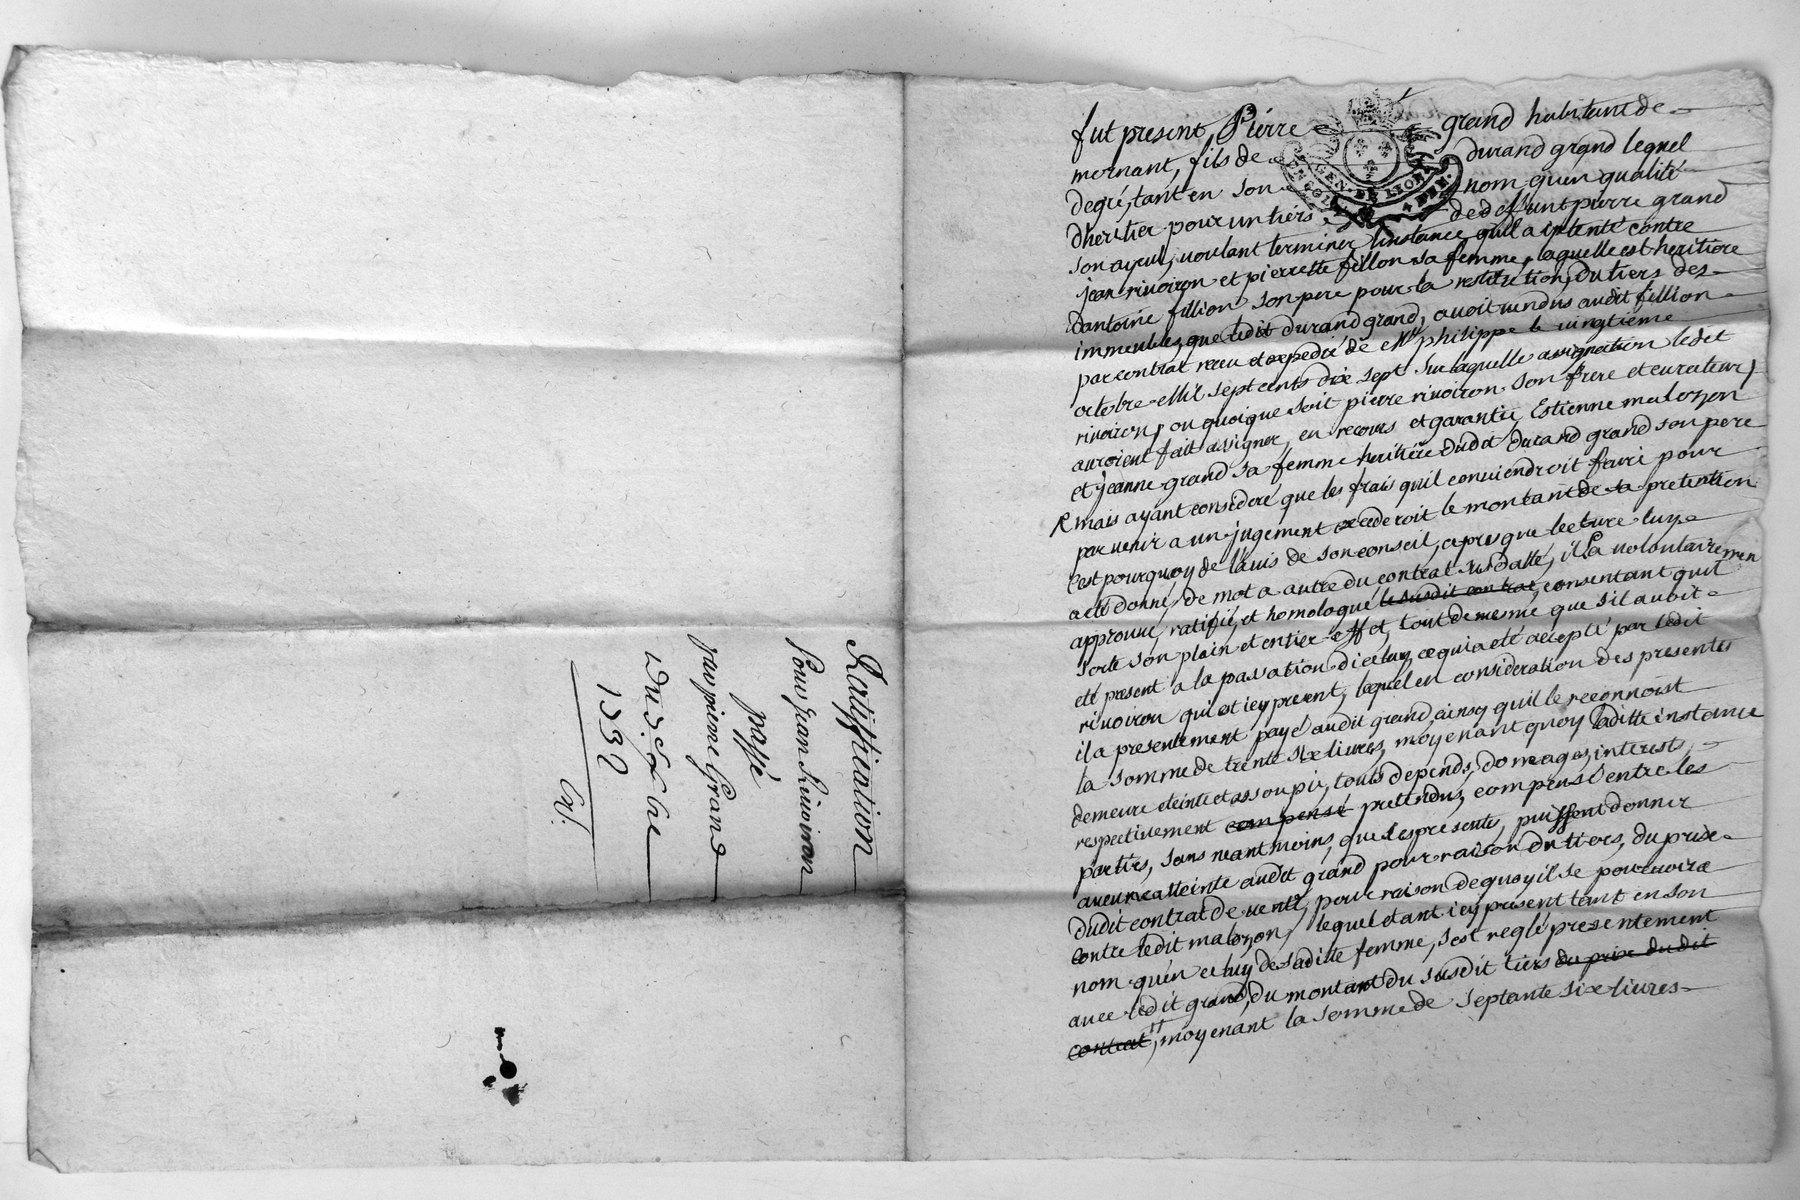 Ratiffication
Pour Jean Rivoiron
passé
par pierre Grand
Du 5e 8bre
1732
fut present, Pierre grand habitant de
mornant, fils de durand grand lequel
degré, tant en son nom qu'en qualité
d'heritier pour un tiers de deffunt pierre grand
son ayeul, voulant terminer linstance quil a intenté contre
jean rivoiron et pierrette fillion sa femme, laquelle est heritiere
dantoine fillion son pere pour la restitution du tiers des
immeubles que ledit durand grand, avoit vendus audit fillion
par contrat receu et expedié de Me philippe le vingtieme
octobre mil sept cents dix sept sur laquelle assignation ledit
rivoiron, ou quoique soit pierre rivoiron son frere et curateur,
auroient fait assigner, en recours et garantie, Estienne malozon
et jeanne grand sa femme heritiere dudit durand grand son pere
mais ayant consideré que les frais quil conviendroit faire pour
parvenir a un jugement excederoit le montant de sa pretention
c'est pourquoy de lavis de son conseil, apres que lecture luy
a eté donné, de mot a autre du contrat susdatté, il la volontairemen
approuvé, ratifié, et homologué le susdit contrat, consentant quil
sorte son plain et entier effet, tout de mesme que s'il avoit
eté present a la passation d'icelluy, ce qui a eté accepté par ledit
rivoiron qui est icy present, lequel en consideration des presentes
il a presentement payé audit grand, ainsy quil le reconnoist
la somme de trente six livres, moyenant quoy laditte instance
demeure eteinte et assoupie, touts depends, domages, interests,
respectivement compensé pretendus, compensé entre les
parties, sans neantmoins, que les présentes, puissent donner
aucune atteinte audit grand pour raison du tiers, du prix
dudit contrat de vente, pour raison de quoy il se pourvoira
contre ledit malozon, lequel etant icy present tant en son
nom qu'en celuy de saditte femme, s'est reglé presentement
avec ledit grand, du montant du susdit tiers du prix dudit
contrat, moyenant la somme de septante six livres
GEN. DE LYON